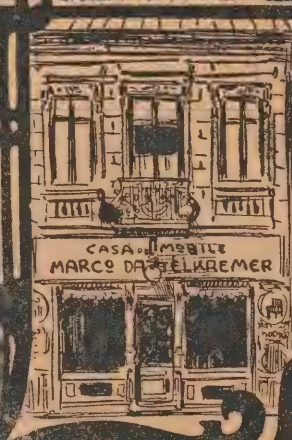 CASA DE MOBILE
MARCO DATTELKREMER